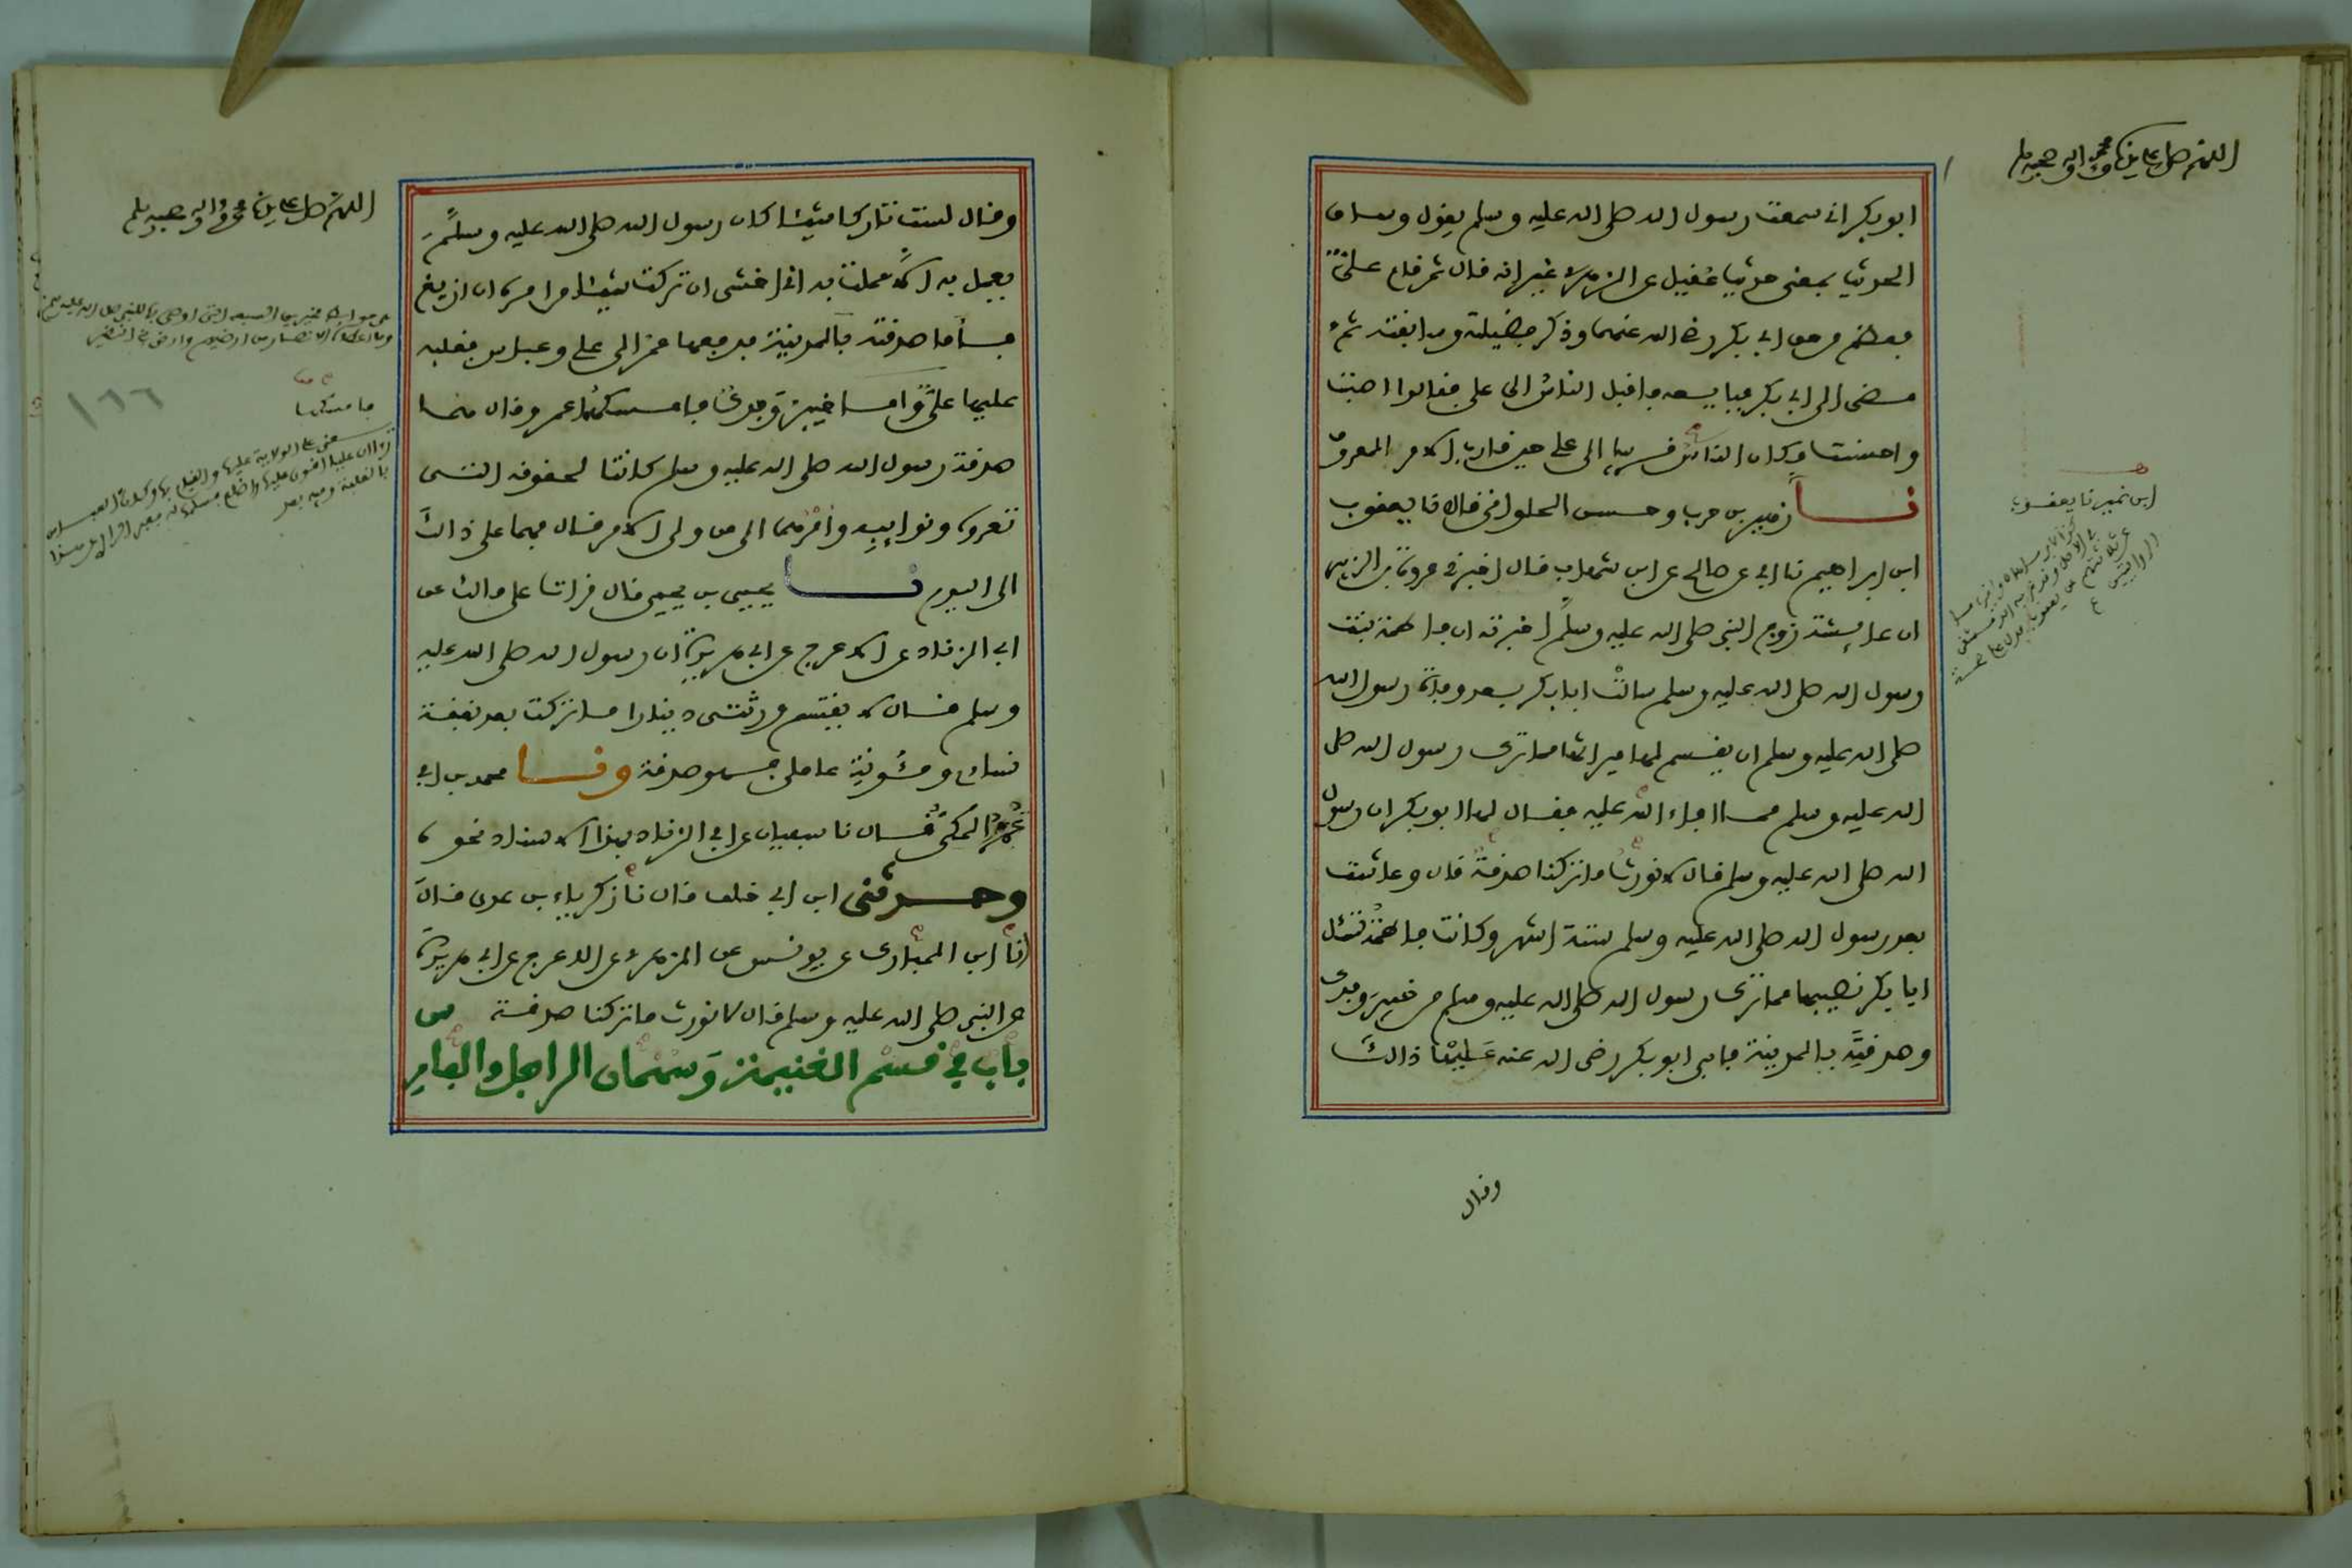 اللهم صل على سيدنا محمد وآله وصحبه وسلم
ابو بكر اني سمعت رسول الله صلى الله عليه وسلم يقول وساق
الحديث بمعنى حديث عقيل عن الزهري غير انه قال ثم قام علي
فعظم من حق ابي بكر رضي الله عنهما وذكر فضيلته وسابقته ثم
مضى الى ابي بكر فبايعه فاقبل الناس الى علي فقالوا اصبت
واحسنت وكان الناس قريبا الى علي حين قارب الامر المعروف
نا زهير بن حرب وحسن الحلواني قال نا يعقوب
ابن ابراهيم نا ابي عن صالح عن ابن شهاب قال اخبرني عروة بن الزبير
ان عائشة زوج النبي صلى الله عليه وسلم اخبرته ان فاطمة بنت
رسول الله صلى الله عليه وسلم سالت ابا بكر بعد وفاة رسول الله
صلى الله عليه وسلم ان يقسم لها ميراثها مما ترك رسول الله صلى
الله عليه وسلم مما افاء الله عليه فقال لها ابو بكر ان رسول
الله صلى الله عليه وسلم قال لا نورث ما تركنا صدقة قال وعاشت
بعد رسول الله صلى الله عليه وسلم ستة اشهر وكانت فاطمة تسئل
ابا بكر نصيبها مما ترك رسول الله صلى الله عليه وسلم من خيبر وفدك
وصدقته بالمدينة فابى ابو بكر رضي الله عنه عليها ذالك
ابن نمير نا يعقوب
وقال
اللهم صل على سيدنا محمد وآله وصحبه وسلم
وقال لست تاركا شيئا كان رسول الله صلى الله عليه وسلم
يعمل به الا عملت به اني اخشى ان تركت شيئا من امره ان ازيغ
فاما صدقته بالمدينة فدفعها عمر الى علي وعباس فغلبه
عليها علي واما خيبر وفدك فامسكهما عمر وقال هما
صدقة رسول الله صلى الله عليه وسلم كانتا لحقوقه التي
تعروه ونوايبه وامرهما الى من ولي الامر قال فهما على ذالك
الى اليوم نا يحيى بن يحيى قال قرات على مالك عن
ابي الزناد عن الاعرج عن ابي هريرة ان رسول الله صلى الله عليه
وسلم قال لا يقتسم ورثتي دينارا ما تركت بعد نفقة
نسائي ومئونة عاملي فهو صدقة ونا محمد بن ابي
عمر المكي قال نا سفيان عن ابي الزناد بهذا الاسناد نحوه
وحدثني ابن ابي خلف قال نا زكرياء بن عدي قال
انا ابن المبارك عن يونس عن الزهري عن الاعرج عن ابي هريرة
عن النبي صلى الله عليه وسلم قال لا نورث ما تركنا صدقة
باب في قسم الغنيمة وسهمان الراجل والفارس
فامسكها
١٦٦